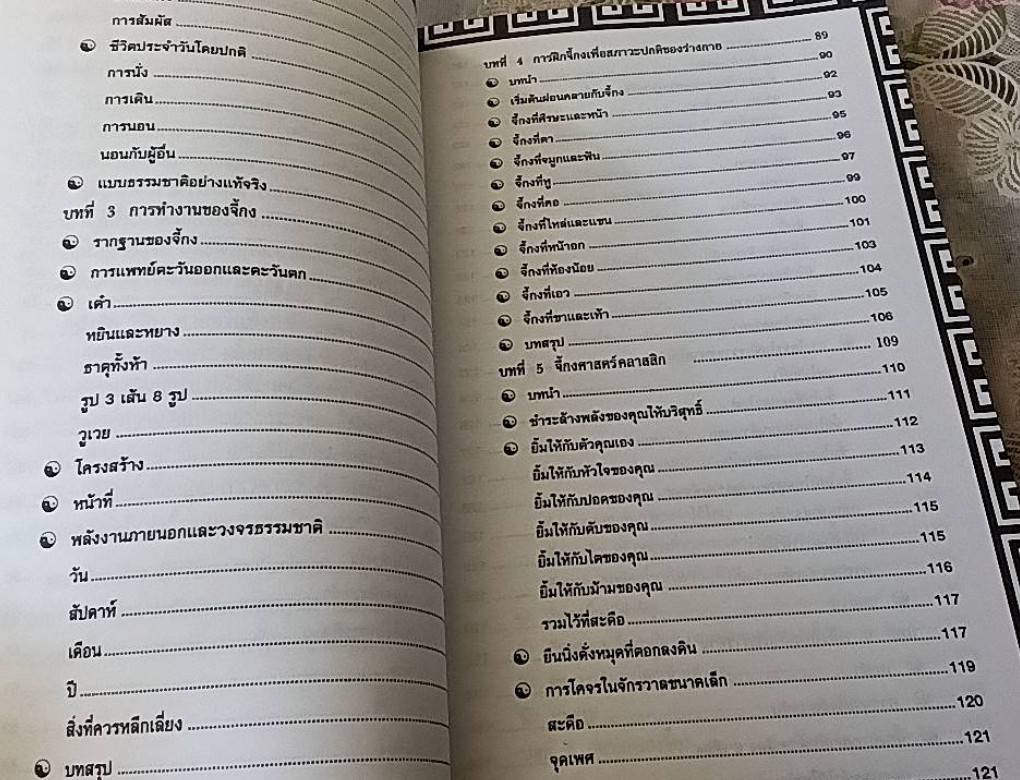 การสัมผัส
ชีวิตประจำวันโดยปกติ
การนั่ง
การเดิน
การนอน
นอนกับผู้อื่น
แบบธรรมชาติอย่างแท้จริง
บทที่ 3 การทำงานของจี้กง
รากฐานของจี้กง
การแพทย์ตะวันออกและตะวันตก
เต๋า
หยินและหยาง
ธาตุทั้งห้า
รูป 3 เส้น 8 รูป
วูเวย
โครงสร้าง
หน้าที่
พลังงานภายนอกและวงจรธรรมชาติ
วัน
สัปดาห์
เดือน
ปี
สิ่งที่ควรหลีกเลี่ยง
บทสรุป
บทที่ 4 การฝึกจี้กงเพื่อสภาวะปกติของร่างกาย 89
บทนำ 90
เริ่มต้นผ่อนคลายกับจี้กง 92
จี้กงที่ศีรษะและหน้า 93
จี้กงที่ตา 95
จี้กงที่จมูกและฟัน 96
จี้กงที่หู 97
จี้กงที่คอ 99
จี้กงที่ไหล่และแขน 100
จี้กงที่หน้าอก 101
จี้กงที่ท้องน้อย 103
จี้กงที่เอว 104
จี้กงที่ขาและเท้า 105
บทสรุป 106
บทที่ 5 จี้กงศาสตร์คลาสสิก 109
บทนำ 110
ชำระล้างพลังของคุณให้บริสุทธิ์ 111
ยิ้มให้กับตัวคุณเอง 112
ยิ้มให้กับหัวใจของคุณ 113
ยิ้มให้กับปอดของคุณ 114
ยิ้มให้กับตับของคุณ 115
ยิ้มให้กับไตของคุณ 115
ยิ้มให้กับม้ามของคุณ 116
รวมไว้ที่สะดือ 117
ยืนนิ่งดั่งหมุดที่ตอกลงดิน 117
การโคจรในจักรวาลขนาดเล็ก 119
สะดือ 120
จุดเพศ 121
121